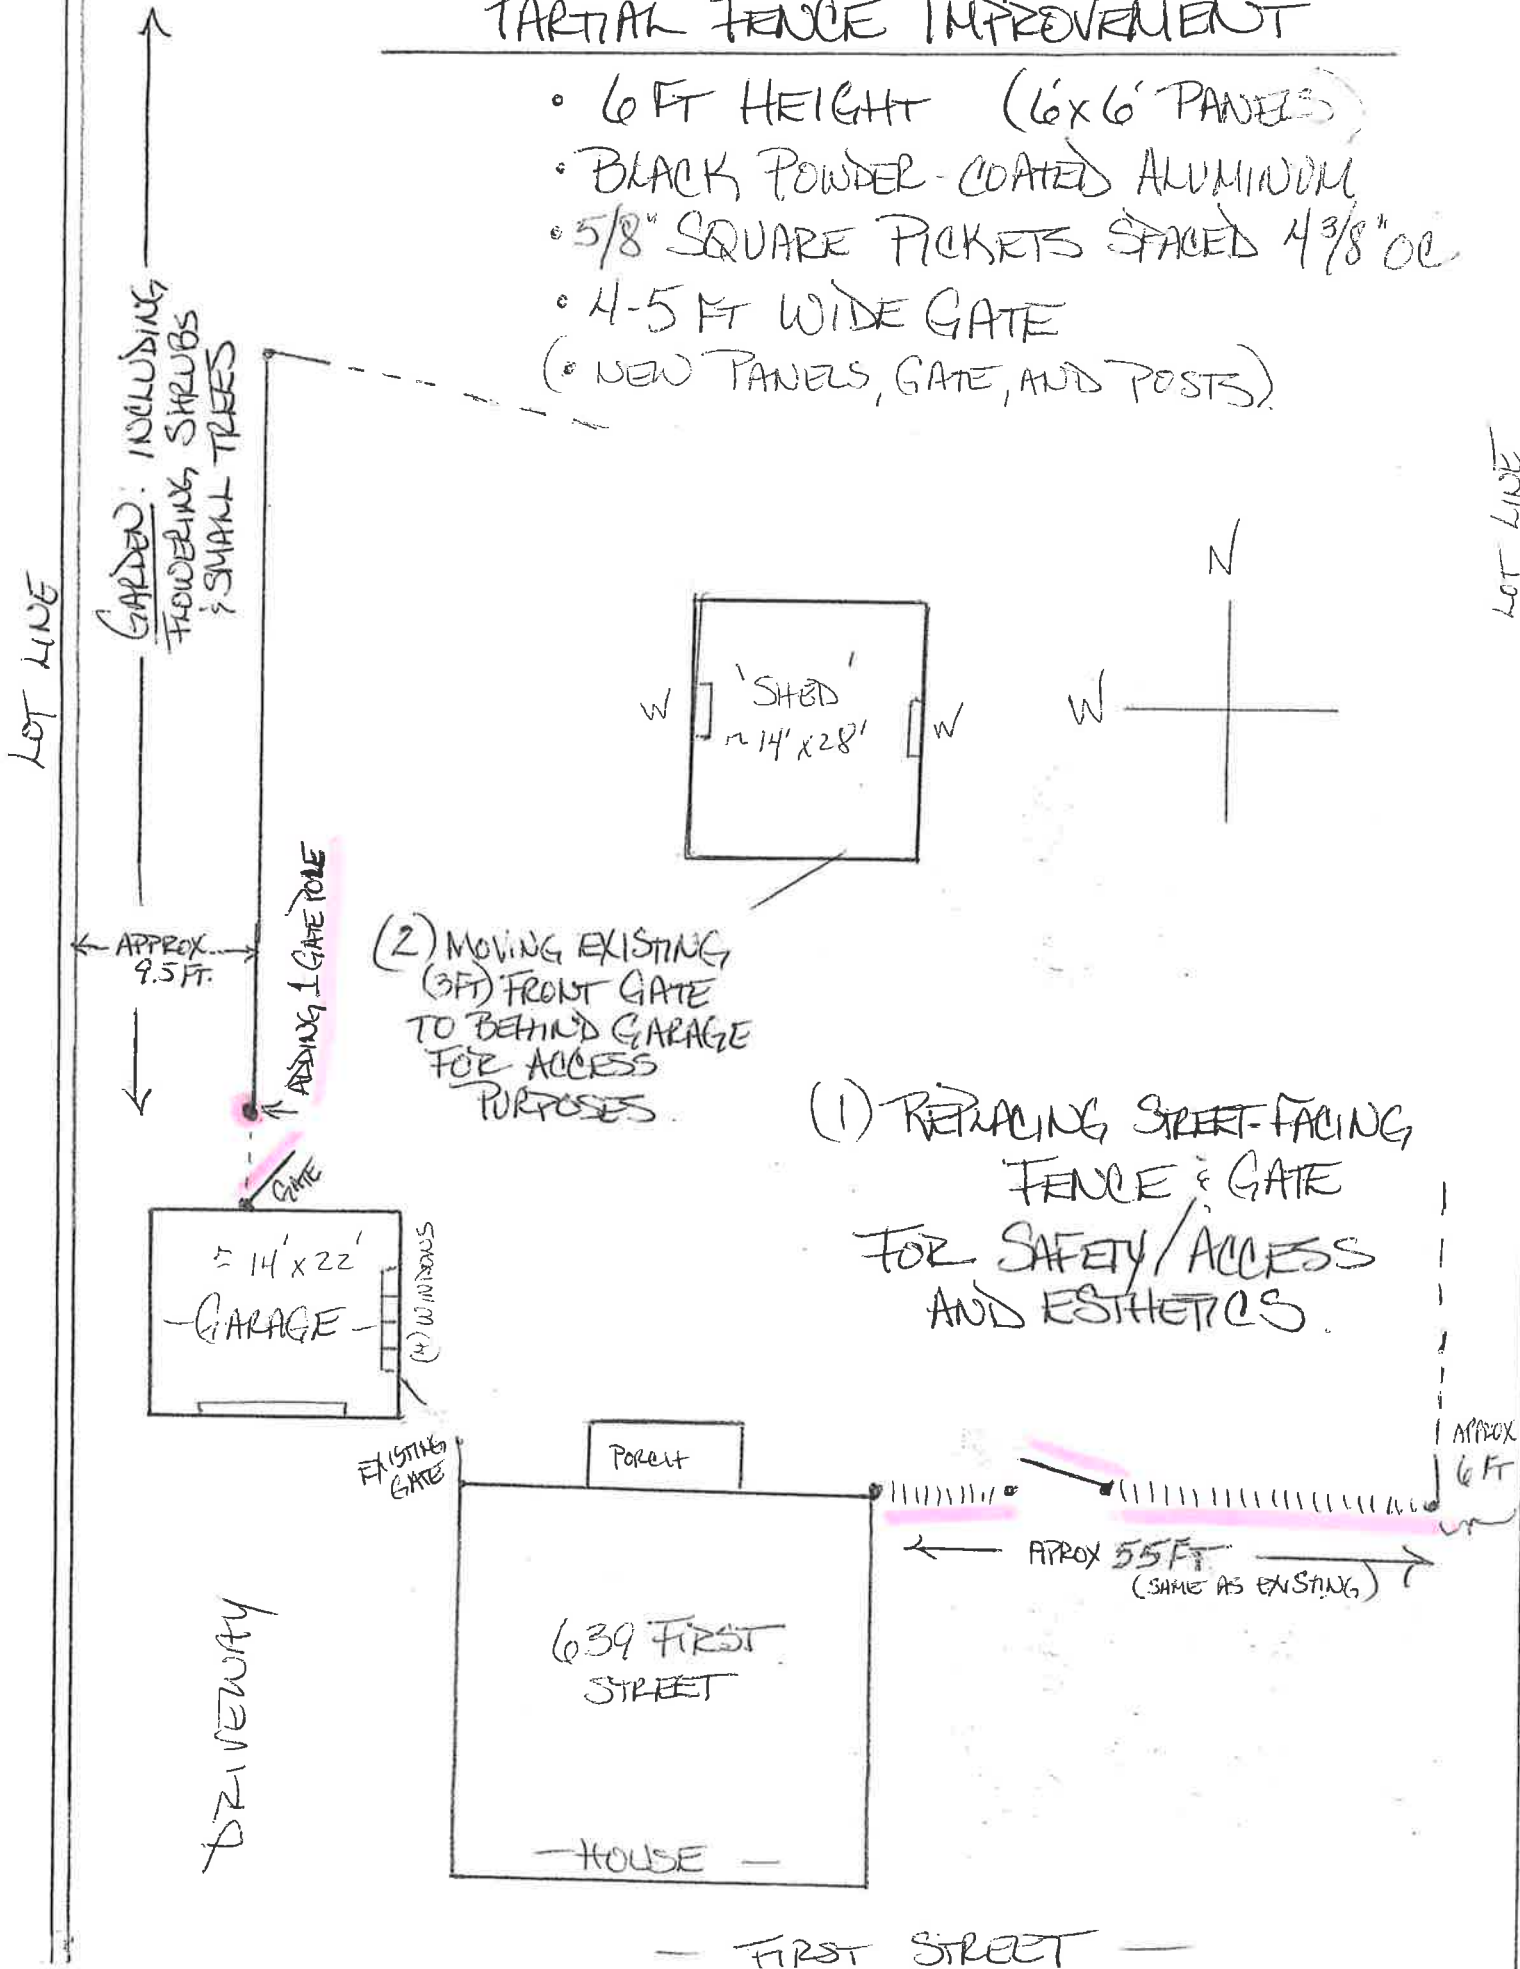 PARTIAL FENCE IMPROVEMENT
• 6 FT HEIGHT (6'x6' PANELS)
• BLACK POWDER-COATED ALUMINUM
• 5/8" SQUARE PICKETS SPACED 4 3/8" OC
• 4-5 FT WIDE GATE
(• NEW PANELS, GATE, AND POSTS)
GARDEN: INCLUDING
FLOWERING SHRUBS
& SMALL TREES
LOT LINE
LOT LINE
N
W
W
'SHED'
~ 14' x 28'
W
APPROX.
9.5 FT.
ADDING 1 GATE POLE
(2) MOVING EXISTING
(3FT) FRONT GATE
TO BEHIND GARAGE
FOR ACCESS
PURPOSES.
(1) REPLACING STREET-FACING
FENCE & GATE
FOR SAFETY/ACCESS
AND ESTHETICS.
GATE
≈ 14' x 22'
-GARAGE-
(4) WINDOWS
EXISTING
GATE
PORCH
APPROX
6 FT
APROX 55 FT.
(SAME AS EXISTING)
639 FIRST
STREET
DRIVEWAY
- HOUSE -
- FIRST STREET -